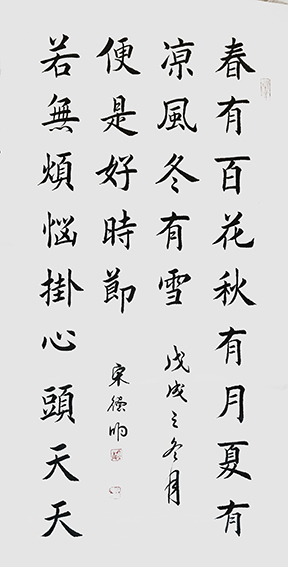 春有百花秋有月夏有
凉風冬有雪
戊戌之冬月
若無煩惱掛心頭天天
便是好時節
宋德明